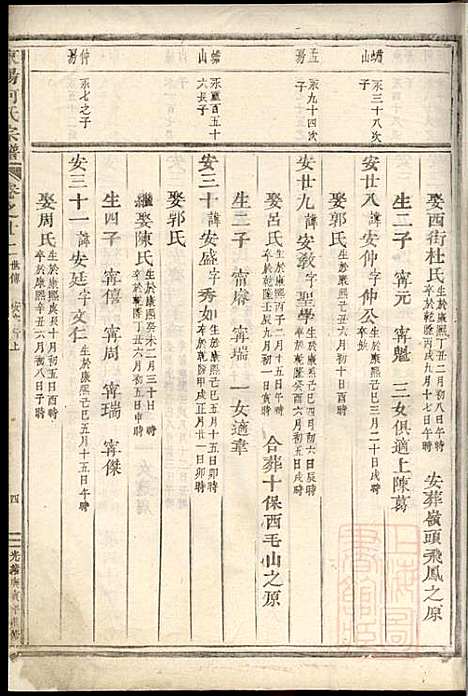 娶西街杜氏 生於康熙丁丑二月初八日辰時 卒於乾隆丙戌九月十七日戌時 安葬嶺頭飛鳳之原
生二子 甯元 甯魁 三女俱適上陳葛
蟾山 永三十八次子
安廿八 諱安仲字仲公 生於康熙己巳三月二十日戌時 卒於
娶郭氏 生於康熙 卒於 丑六月初十日酉時
孟昜 永九十四次子
安廿九 諱安敎字聖學 生於康熙己巳四月廿五日戌時 卒於乾隆癸酉六月初五日戌時
娶呂氏 生於康熙丙子二月十五日戌時 卒於乾隆壬辰九月初一日寅時 合葬十保西毛山之原
生二子 甯 甯瑞 一女適韋
蟾山 永貳百五十六長子
安三十 諱安盛字秀如 生於康熙己巳五月十五日卯時 卒於乾隆甲戌正月廿一日卯時
娶郭氏
繼娶陳氏 生於康熙癸未二月三十日時 卒於乾隆丁丑六月初五日申時
生四子 甯僖 甯周 甯瑞 甯傑
仲昜 永七之子
安三十一 諱安延字文仁 生於康熙己巳五月十五日午時
娶周氏 生於康熙庚辰十月初五日酉時 卒於康熙辛丑六月初八日子時
東陽何氏宗譜 卷之 世傳 安字行上 四 光緒庚寅年重脩
上海圖書館藏